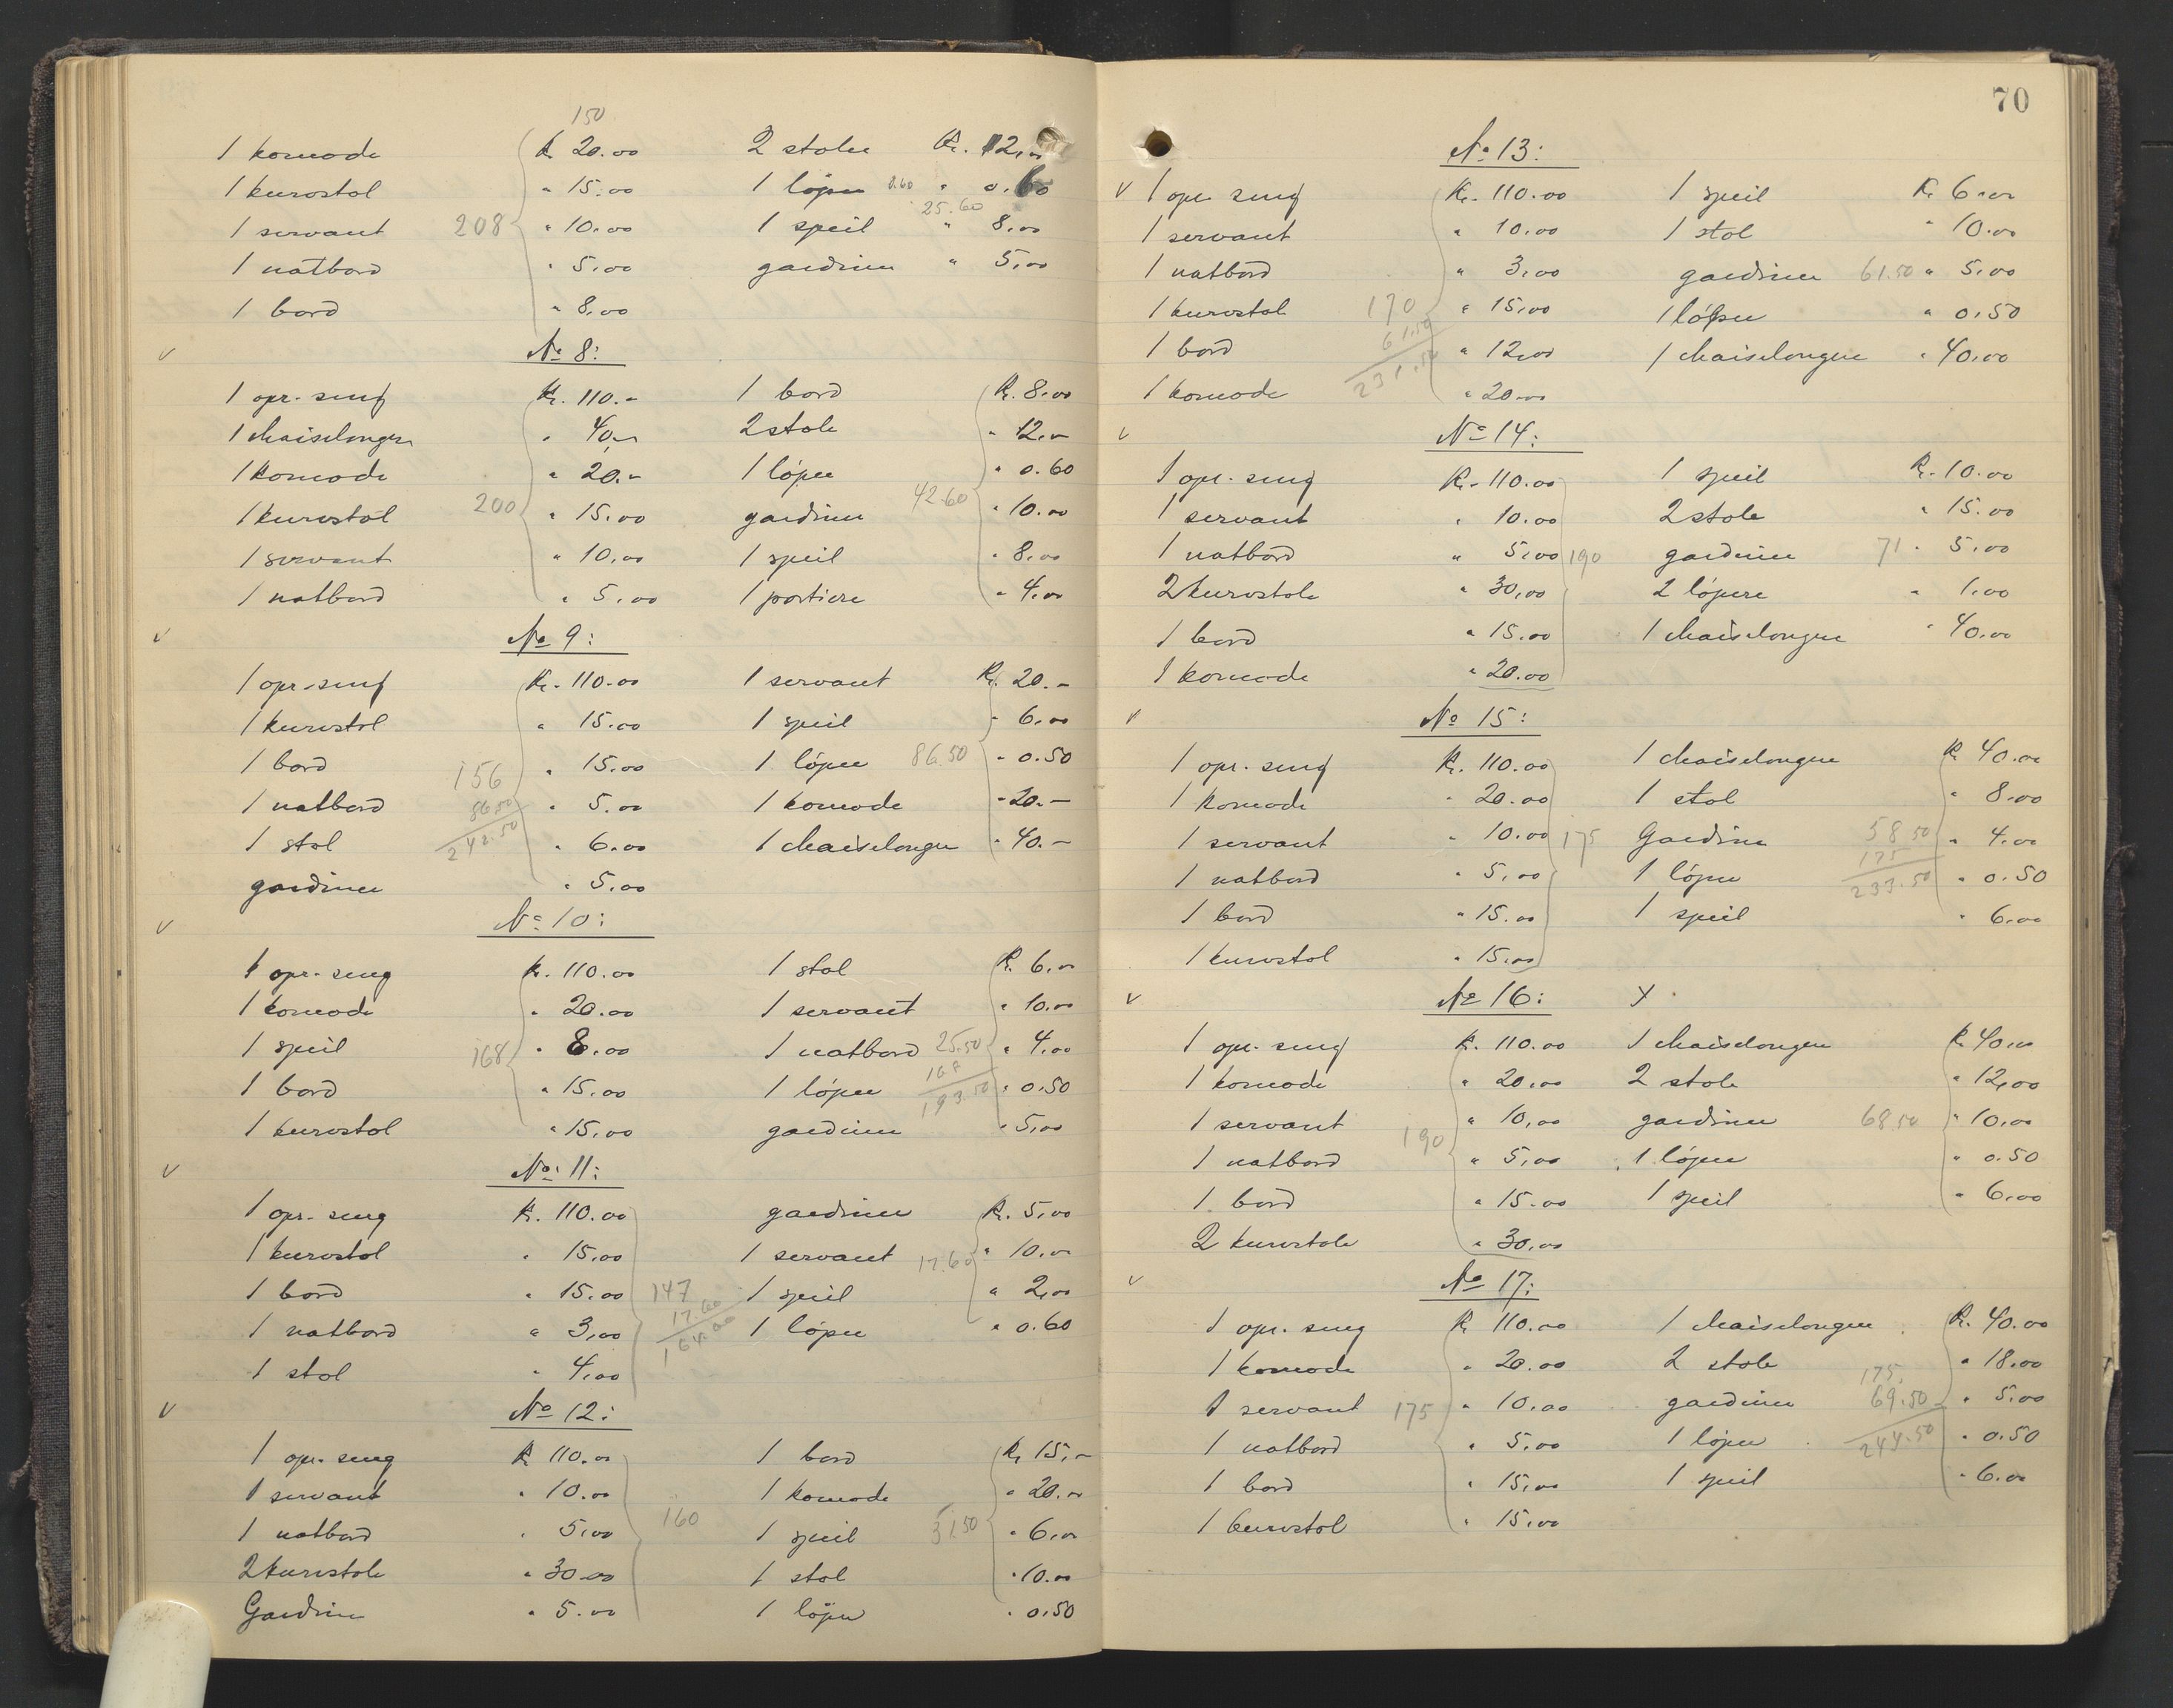 150
1 komode Kr. 20.00 2 stoler Kr. 12.00
1 kurvstol " 15.00 1 löper 0.60 " 0.60
1 servant 208 " 10.00 25.60 1 speil " 8.00
1 natbord " 5.00 gardiner " 5.00
1 bord " 8.00
√ No 8:
1 opr. seng Kr. 110.- 1 bord Kr. 8.00
1 chaiselongue " 40.- 2 stole " 12.-
1 komode " 20.- 1 löper " 0.60
1 kurvstol 200 " 15.00 gardiner 42.60 " 10.00
1 servant " 10.00 1 speil " 8.00
1 natbord " 5.00 1 portiere " 4.00
√ No 9:
1 opr. seng Kr. 110.00 1 servant Kr. 20.-
1 kurvstol " 15.00 1 speil " 6.00
1 bord 156 " 15.00 1 löper 86.50 " 0.50
1 natbord 86.50 " 5.00 1 komode " 20.-
1 stol 242.50 " 6.00 1 chaiselongue " 40.-
gardiner " 5.00
√ No 10:
1 opr. seng Kr. 110.00 1 stol Kr. 6.00
1 komode " 20.00 1 servant " 10.00
1 speil 168 " 8.00 1 natbord 25.50 " 4.00
1 bord " 15.00 1 löper 168 193.50 " 0.50
1 kurvstol " 15.00 gardiner " 5.00
√ No: 11:
1 opr. seng Kr. 110.00 gardiner Kr. 5.00
1 kurvstol " 15.00 1 servant 17.60 " 10.00
1 bord " 15.00 147 1 speil " 2.00
1 natbord " 3.00 17.60 164.00 1 löper " 0.60
1 stol " 4.00
√ No 12:
1 opr. seng Kr. 110.00 1 bord Kr. 15.-
1 servant " 10.00 1 komode " 20.00
1 natbord " 5.00 160 1 speil 51.50 " 6.00
2 kurvstole " 30.00 1 stol " 10.00
Gardiner " 5.00 1 löper " 0.50
70
No 13:
√ 1 opr. seng Kr. 110.00 1 speil Kr. 6.00
1 servant " 10.00 1 stol " 10.00
1 natbord " 3.00 gardiner 61.50 " 5.00
1 kurvstol 170 " 15.00 1 löper " 0.50
1 bord 61.50 " 12.00 1 chaiselongue " 40.00
1 komode 231.50 " 20.00
√ No 14:
1 opr. seng Kr. 110.00 1 speil Kr. 10.00
1 servant " 10.00 2 stole " 15.00
1 natbord " 5.00 190 gardiner 71 " 5.00
2 kurvstole " 30.00 2 löpere " 1.00
1 bord " 15.00 1 chaiselongue " 40.00
1 komode " 20.00
√ No 15:
1 opr. seng Kr. 110.00 1 chaiselongue Kr. 40.00
1 komode " 20.00 1 stol " 8.00
1 servant " 10.00 175 Gardiner 58.50 " 4.00
1 natbord " 5.00 1 löper 175 233.50 " 0.50
1 bord " 15.00 1 speil " 6.00
1 kurvstol " 15.00
√ No 16: x
1 opr. seng Kr. 110.00 1 chaiselongue Kr. 40.00
1 komode " 20.00 2 stole " 12.00
1 servant 190 " 10.00 gardiner 68.50 " 10.00
1 natbord " 5.00 1 löper " 0.50
1 bord " 15.00 1 speil " 6.00
2 kurvstole " 30.00
√ No 17:
1 opr. seng Kr. 110.00 1 chaiselongue Kr. 40.00
1 komode " 20.00 2 stole 175 " 18.00
1 servant 175 " 10.00 gardiner 69.50 " 5.00
1 natbord " 5.00 1 löper 244.50 " 0.50
1 bord " 15.00 1 speil " 6.00
1 kurvstol " 15.00